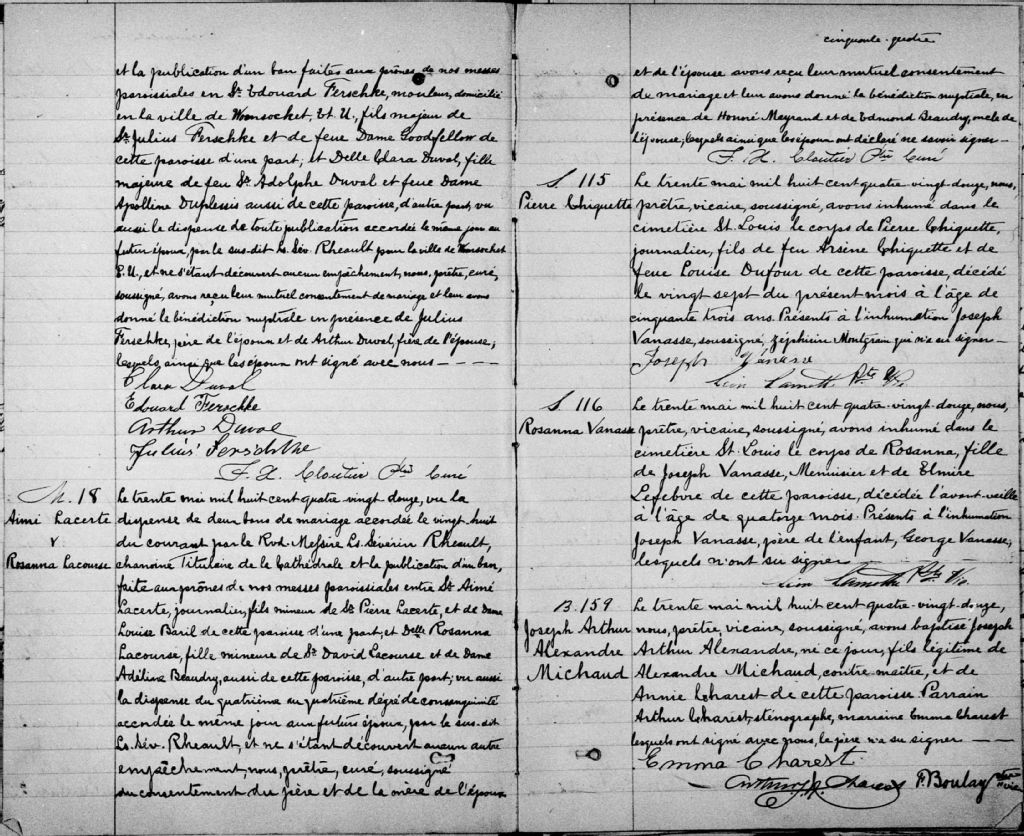 et la publication d'un ban faites aux prônes de nos messes
paroissiales en Sr. Edouard Ferschke, mouleur, domicilié
en la ville de Woonsocket, Et. U., fils majeur de
Sr. Julius Ferschke et de feue Dame Goodfellow de
cette paroisse d'une part; et Delle Clara Duval, fille
majeure de feu Sr. Adolphe Duval et feue Dame
Apolline Duplessis aussi de cette paroisse, d'autre part, vu
aussi le dispense de toute publication accordée le même jour au
futur époux, par le sus-dit Ls. Sév. Rheault pour la ville de Woonsocket
E. U., et ne s'étant découvert aucun empêchement, nous, prêtre, curé,
soussigné, avons reçu leur mutuel consentement de mariage et leur avons
donné la bénédiction nuptiale en présence de Julius
Ferschke, père de l'époux et de Arthur Duval, frère de l'épouse;
lesquels ainsi que les époux ont signé avec nous — — — —
Clara Duval
Edouard Ferschke
Arthur Duval
Julius Ferschke
F. X. Cloutier Ptre Curé
M. 18
Aimé Lacerte
v
Rosanna Lacourse
Le trente mai mil huit cent quatre vingt-douze, vu la
dispense de deux bans de mariage accordée le vingt-huit
du courant par le Rvd. Messire Ls. Séverin Rheault,
chanoine Titulaire de la Cathédrale et la publication d'un ban,
faite aux prônes de nos messes paroissiales entre Sr. Aimé
Lacerte, journalier, fils mineur de Sr. Pierre Lacerte, et de Dame
Louise Baril de cette paroisse d'une part; et Delle Rosanna
Lacourse, fille mineure de Sr. David Lacourse et de Dame
Adélina Beaudry, aussi de cette paroisse, d'autre part; vu aussi
la dispense du quatrième au quatrième dégré de consanguinité
accordée le même jour aux futurs époux, par le sus-dit
Ls. Sév. Rheault, et ne s'étant découvert aucun autre
empêchement, nous, prêtre, curé, soussigné
du consentement du père et de la mère de l'époux
cinquante-quatre
et de l'épouse avons reçu leur mutuel consentement
de mariage et leur avons donné la bénédiction nuptiale, en
présence de Honoré Meyrand et de Edmond Beaudry, oncle de
l'épouse; lesquels ainsi que les époux ont déclaré ne savoir signer —
F. X. Cloutier Ptre Curé
S. 115
Pierre Chiquette
Le trente mai mil huit cent quatre-vingt-douze, nous,
prêtre, vicaire, soussigné, avons inhumé dans le
cimetière St. Louis le corps de Pierre Chiquette,
journalier, fils de feu Arsène Chiquette et de
feue Louise Dufour de cette paroisse, décédé
le vingt sept du présent mois à l'âge de
cinquante trois ans. Présents à l'inhumation Joseph
Vanasse, soussigné, Zéphirin Montgrain qui n'a su signer —
Joseph Vanasse
Ptre
S. 116
Rosanna Vanasse
Le trente mai mil huit cent quatre-vingt-douze, nous,
prêtre, vicaire, soussigné, avons inhumé dans le
cimetière St. Louis le corps de Rosanna, fille
de Joseph Vanasse, Menuisier et de Elmire
Lefebvre de cette paroisse, décédée l'avant-veille
à l'âge de quatorze mois. Présents à l'inhumation
Joseph Vanasse, père de l'enfant, George Vanasse,
lesquels n'ont su signer
Ptre
B. 159
Joseph Arthur
Alexandre
Michaud
Le trente mai mil huit cent quatre-vingt-douze,
nous, prêtre, vicaire, soussigné, avons baptisé Joseph
Arthur Alexandre, né ce jour, fils légitime de
Alexandre Michaud, contre-maître, et de
Annie Charest de cette paroisse Parrain
Arthur Charest, sténographe, marraine Emma Charest
lesquels ont signé avec nous, le père n'a su signer — —
Emma Charest.
Arthur Charest F. Boulay ptre vic